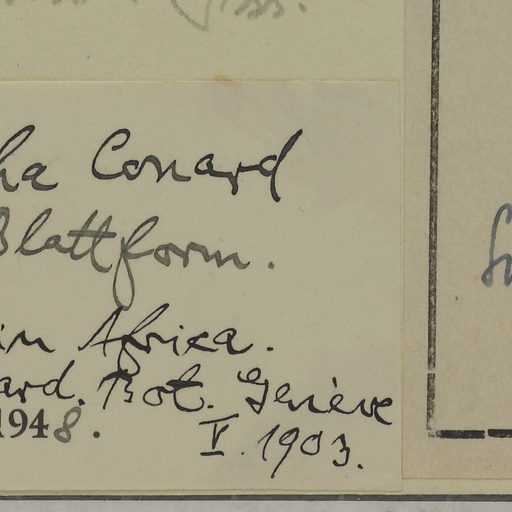 ha Conard
Blattform.
in Africa.
ard. Bot. Genève
1948.
V. 1903.